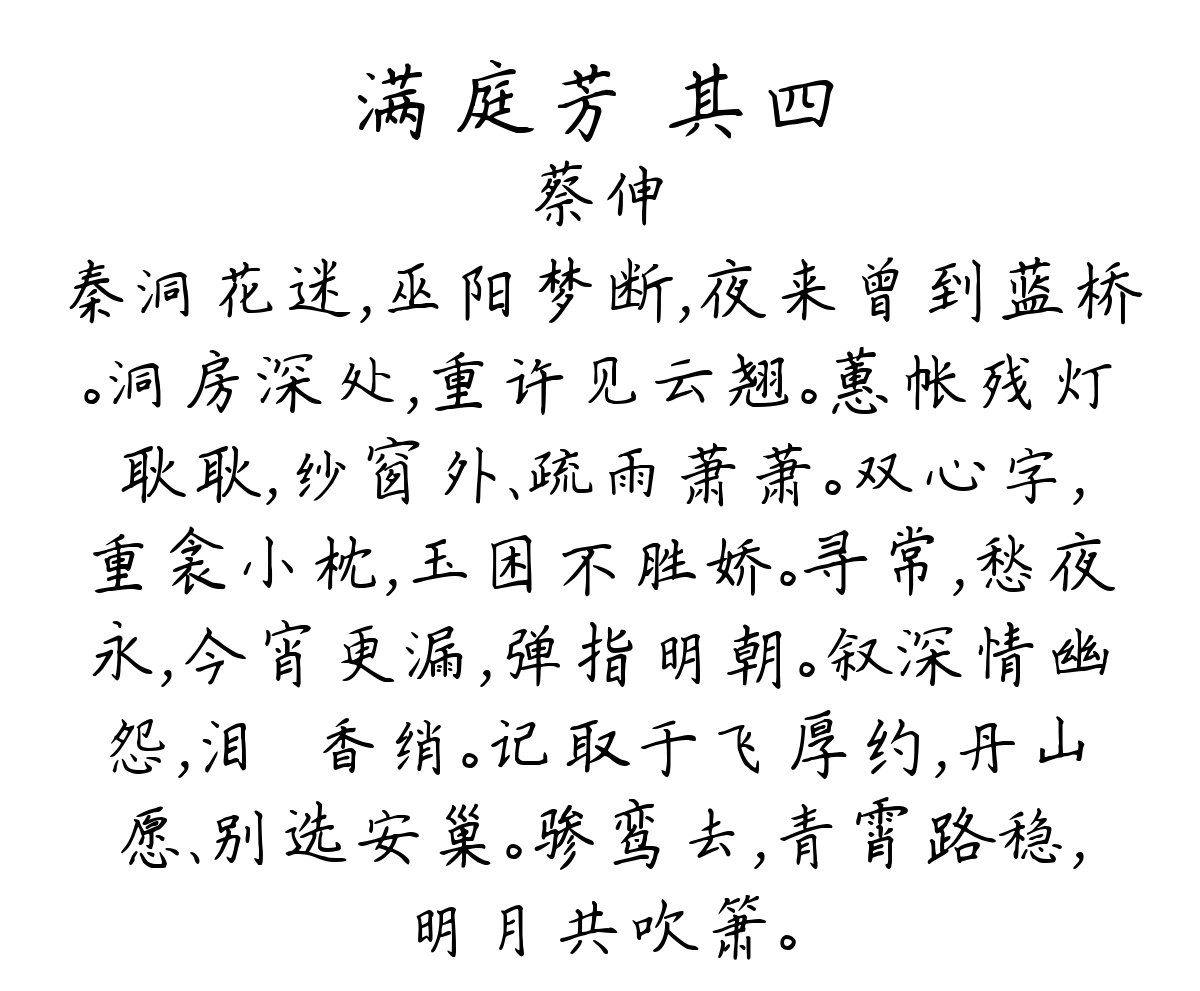 满庭芳 其四
蔡伸
秦洞花迷,巫阳梦断,夜来曾到蓝桥
。洞房深处,重许见云翘。蕙帐残灯
耿耿,纱窗外、疏雨萧萧。双心字,
重衾小枕,玉困不胜娇。寻常,愁夜
永,今宵更漏,弹指明朝。叙深情幽
怨,泪 香绡。记取于飞厚约,丹山
愿、别选安巢。骖鸾去,青霄路稳,
明月共吹箫。